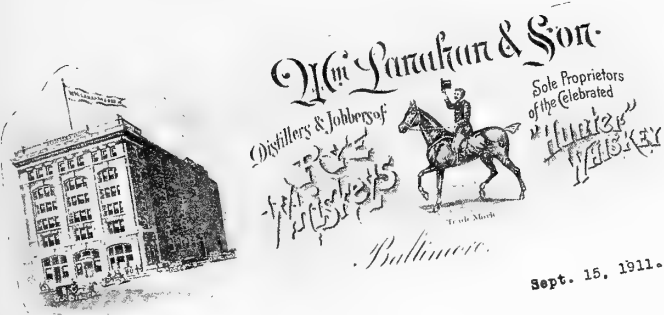 Wm Lanahan & Son.
Distillers & Jobbers of
Rye
Whiskeys
Sole Proprietors
of the Celebrated
"Hunter"
Whiskey
Trade Mark
Baltimore.
Sept. 15, 1911.